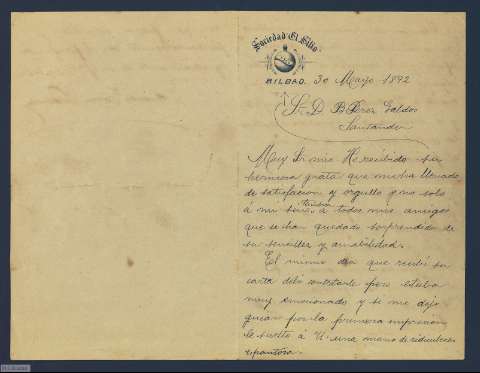 Sociedad "El Sitio"
BILBAO. 30 Mayo 1892
Sr. D. B Perez Galdos
Santander
Muy Sr mio He recibido su
hermosa grata que me ha llenado
de satisfacion y orgullo y no solo
á mi sino á todos mis amigos
que se han quedado sorprendidos de
su sencillez y amabilidad.
El mismo dia que recibí su
carta debí contestarle pero estaba
muy emocionado y si me dejo
guiar por la primera impresion
le suelto á V. una mano de
espantosa.